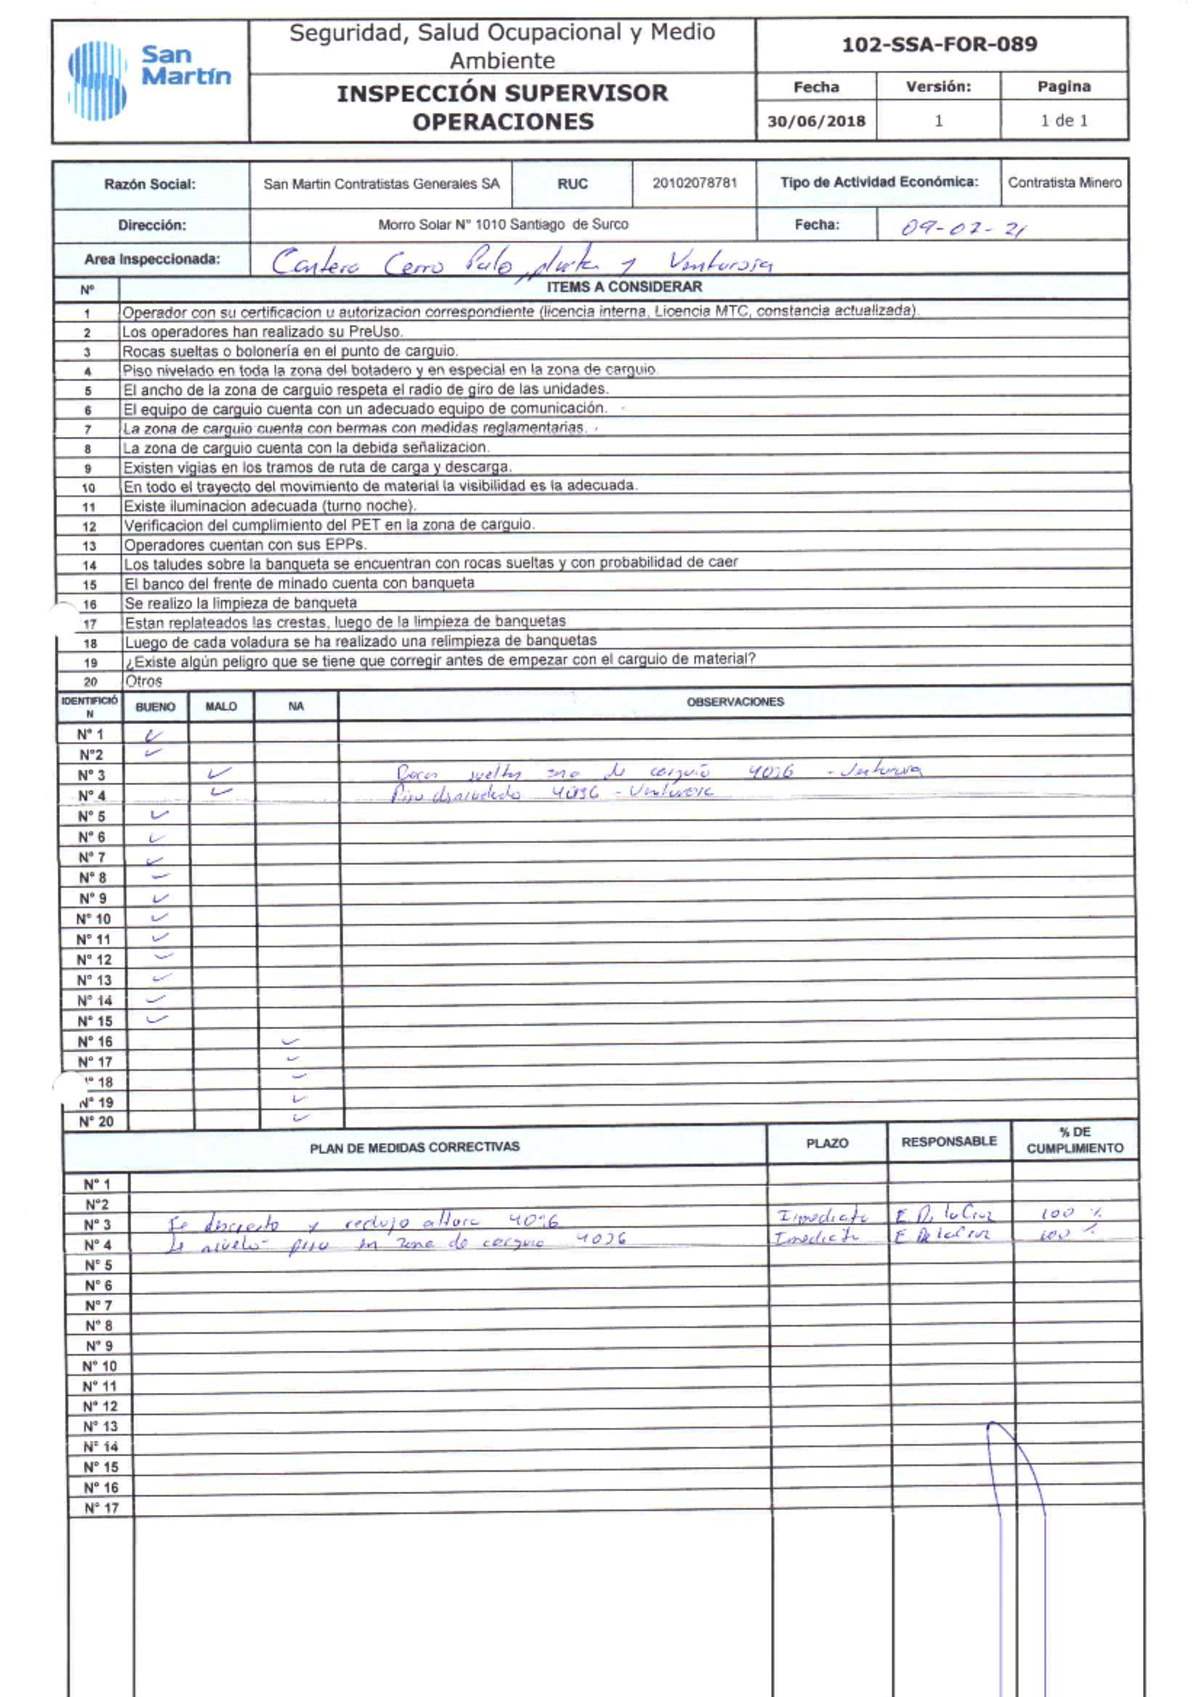 San Martín
Seguridad, Salud Ocupacional y Medio Ambiente
INSPECCIÓN SUPERVISOR OPERACIONES
102-SSA-FOR-089
Fecha Versión: Pagina
30/06/2018 1 1 de 1
Razón Social: San Martin Contratistas Generales SA RUC 20102078781 Tipo de Actividad Económica: Contratista Minero
Dirección: Morro Solar N° 1010 Santiago de Surco Fecha: 09-02-21
Area Inspeccionada: Cantera Cerro Palo, planta y Venturosa
N° ITEMS A CONSIDERAR
1 Operador con su certificacion u autorizacion correspondiente (licencia interna, Licencia MTC, constancia actualizada).
2 Los operadores han realizado su PreUso.
3 Rocas sueltas o bolonería en el punto de carguio.
4 Piso nivelado en toda la zona del botadero y en especial en la zona de carguio
5 El ancho de la zona de carguio respeta el radio de giro de las unidades.
6 El equipo de carguio cuenta con un adecuado equipo de comunicación.
7 La zona de carguio cuenta con bermas con medidas reglamentarias.
8 La zona de carguio cuenta con la debida señalizacion.
9 Existen vigias en los tramos de ruta de carga y descarga.
10 En todo el trayecto del movimiento de material la visibilidad es la adecuada.
11 Existe iluminacion adecuada (turno noche).
12 Verificacion del cumplimiento del PET en la zona de carguio.
13 Operadores cuentan con sus EPPs.
14 Los taludes sobre la banqueta se encuentran con rocas sueltas y con probabilidad de caer
15 El banco del frente de minado cuenta con banqueta
16 Se realizo la limpieza de banqueta
17 Estan replateados las crestas, luego de la limpieza de banquetas
18 Luego de cada voladura se ha realizado una relimpieza de banquetas
19 ¿Existe algún peligro que se tiene que corregir antes de empezar con el carguio de material?
20 Otros
IDENTIFICIÓN BUENO MALO NA OBSERVACIONES
N° 1 ✓
N°2 ✓
N° 3 ✓ Rocas sueltas zona de carguio 4036 - Venturosa
N° 4 ✓ Piso desnivelado 4036 - Venturosa
N° 5 ✓
N° 6 ✓
N° 7 ✓
N° 8 ✓
N° 9 ✓
N° 10 ✓
N° 11 ✓
N° 12 ✓
N° 13 ✓
N° 14 ✓
N° 15 ✓
N° 16 ✓
N° 17 ✓
N° 18 ✓
N° 19 ✓
N° 20 ✓
PLAN DE MEDIDAS CORRECTIVAS PLAZO RESPONSABLE % DE CUMPLIMIENTO
N° 1
N°2
N° 3 Se y redujo altura 4036 Inmediato E De la Cruz 100 %
N° 4 Se nivelo piso en zona de carguio 4036 Inmediato E De la Cruz 100 %
N° 5
N° 6
N° 7
N° 8
N° 9
N° 10
N° 11
N° 12
N° 13
N° 14
N° 15
N° 16
N° 17